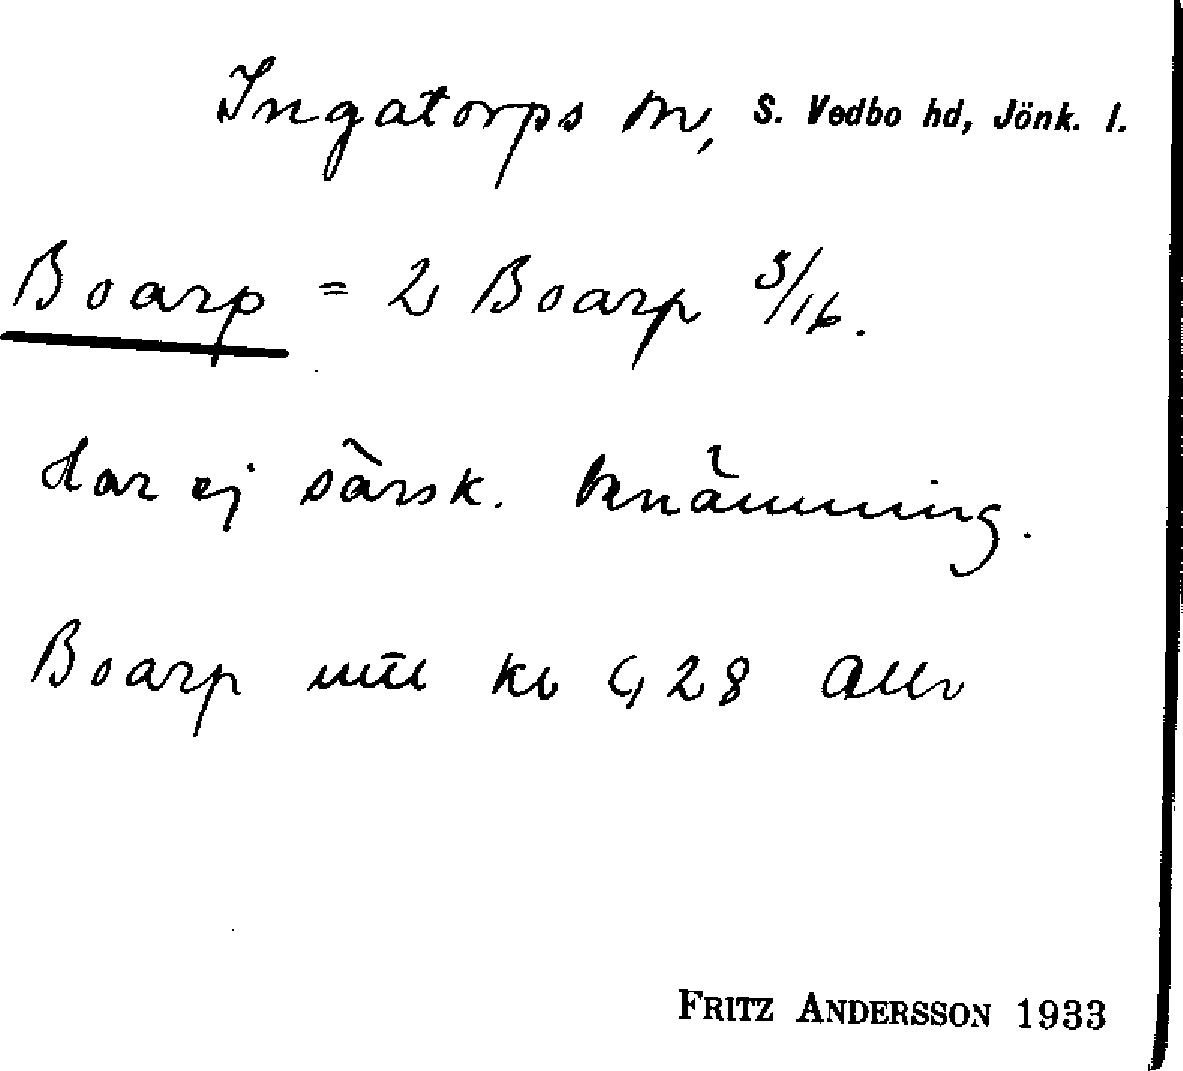 Ingatorps sn, S. Vedbo hd, Jönk. l.
Boarp = 2 Boarp 3/16.
Har ej särsk. benämning.
Boarp 28
FRITZ ANDERSSON 1933